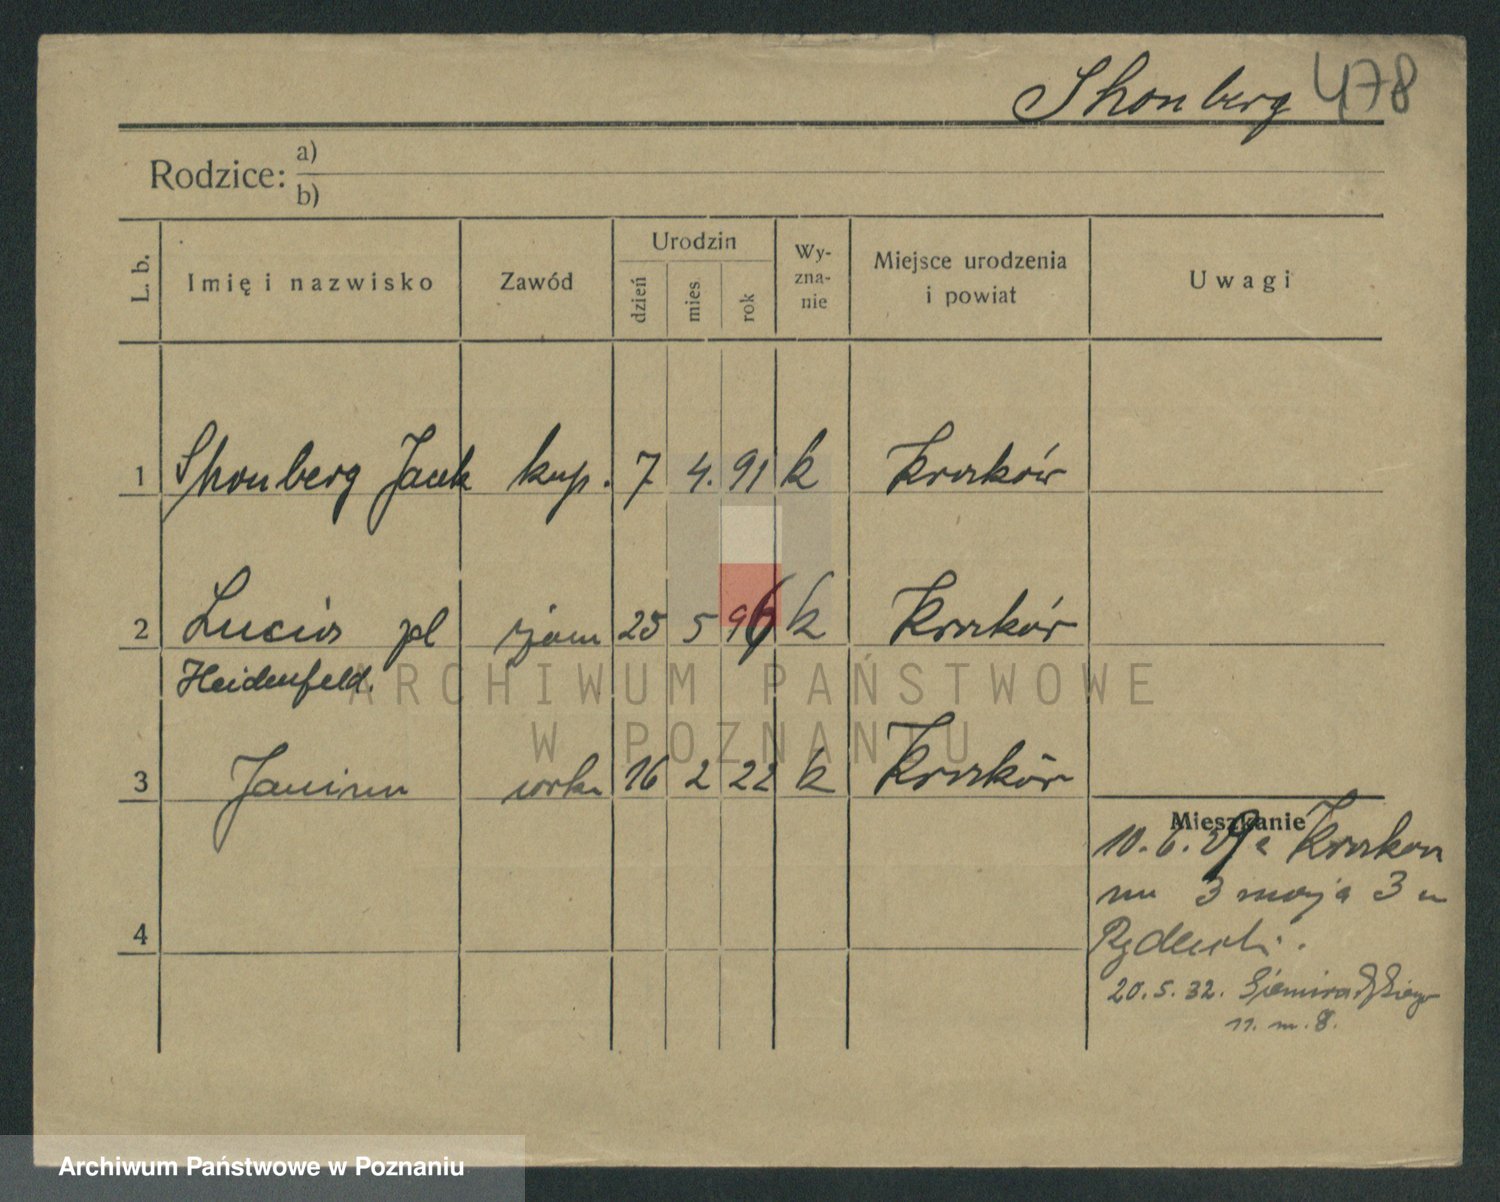 Shonberg 478
Rodzice: a)
b)
L. b. Imię i nazwisko Zawód Urodzin dzień mies rok Wy-zna-nie Miejsce urodzenia i powiat Uwagi
1 Shonberg Jacek kup. 7 4. 91 k Kraków
2 Lucia 25 5 96 k Kraków
Heidenfeld.
3 Janina córka 16 2 22 k Kraków
Mieszkanie
10. 6. 29 z Krakowa
3 maja 3 u
4
20. 5. 32. Siemiradzkiego
11. m. 8.
ARCHIWUM PAŃSTWOWE
W POZNANIU
Archiwum Państwowe w Poznaniu